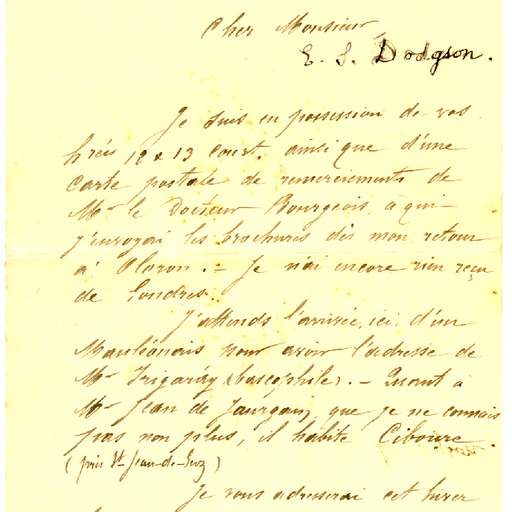 Cher Monsieur,
E. S. Dodgson.
Je suis en possession de vos
12 & 13 court. ainsi que d'une
Carte postale de remerciements de
Mr le Docteur Bourgeois, a qui
j'envoyai les brochures dès mon retour
à Oloron. — Je n'ai encore rien reçu
de Londres.
J'attends l'arrivée, ici, d'un
Mauléonais pour avoir l'adresse de
Mr Irigaráy (bascophile). — Quant à
Mr Jean de Jaurgain, que je ne connais
pas non plus, il habite Ciboure
(près St Jean-de-Luz)
Je vous adresserai cet hiver